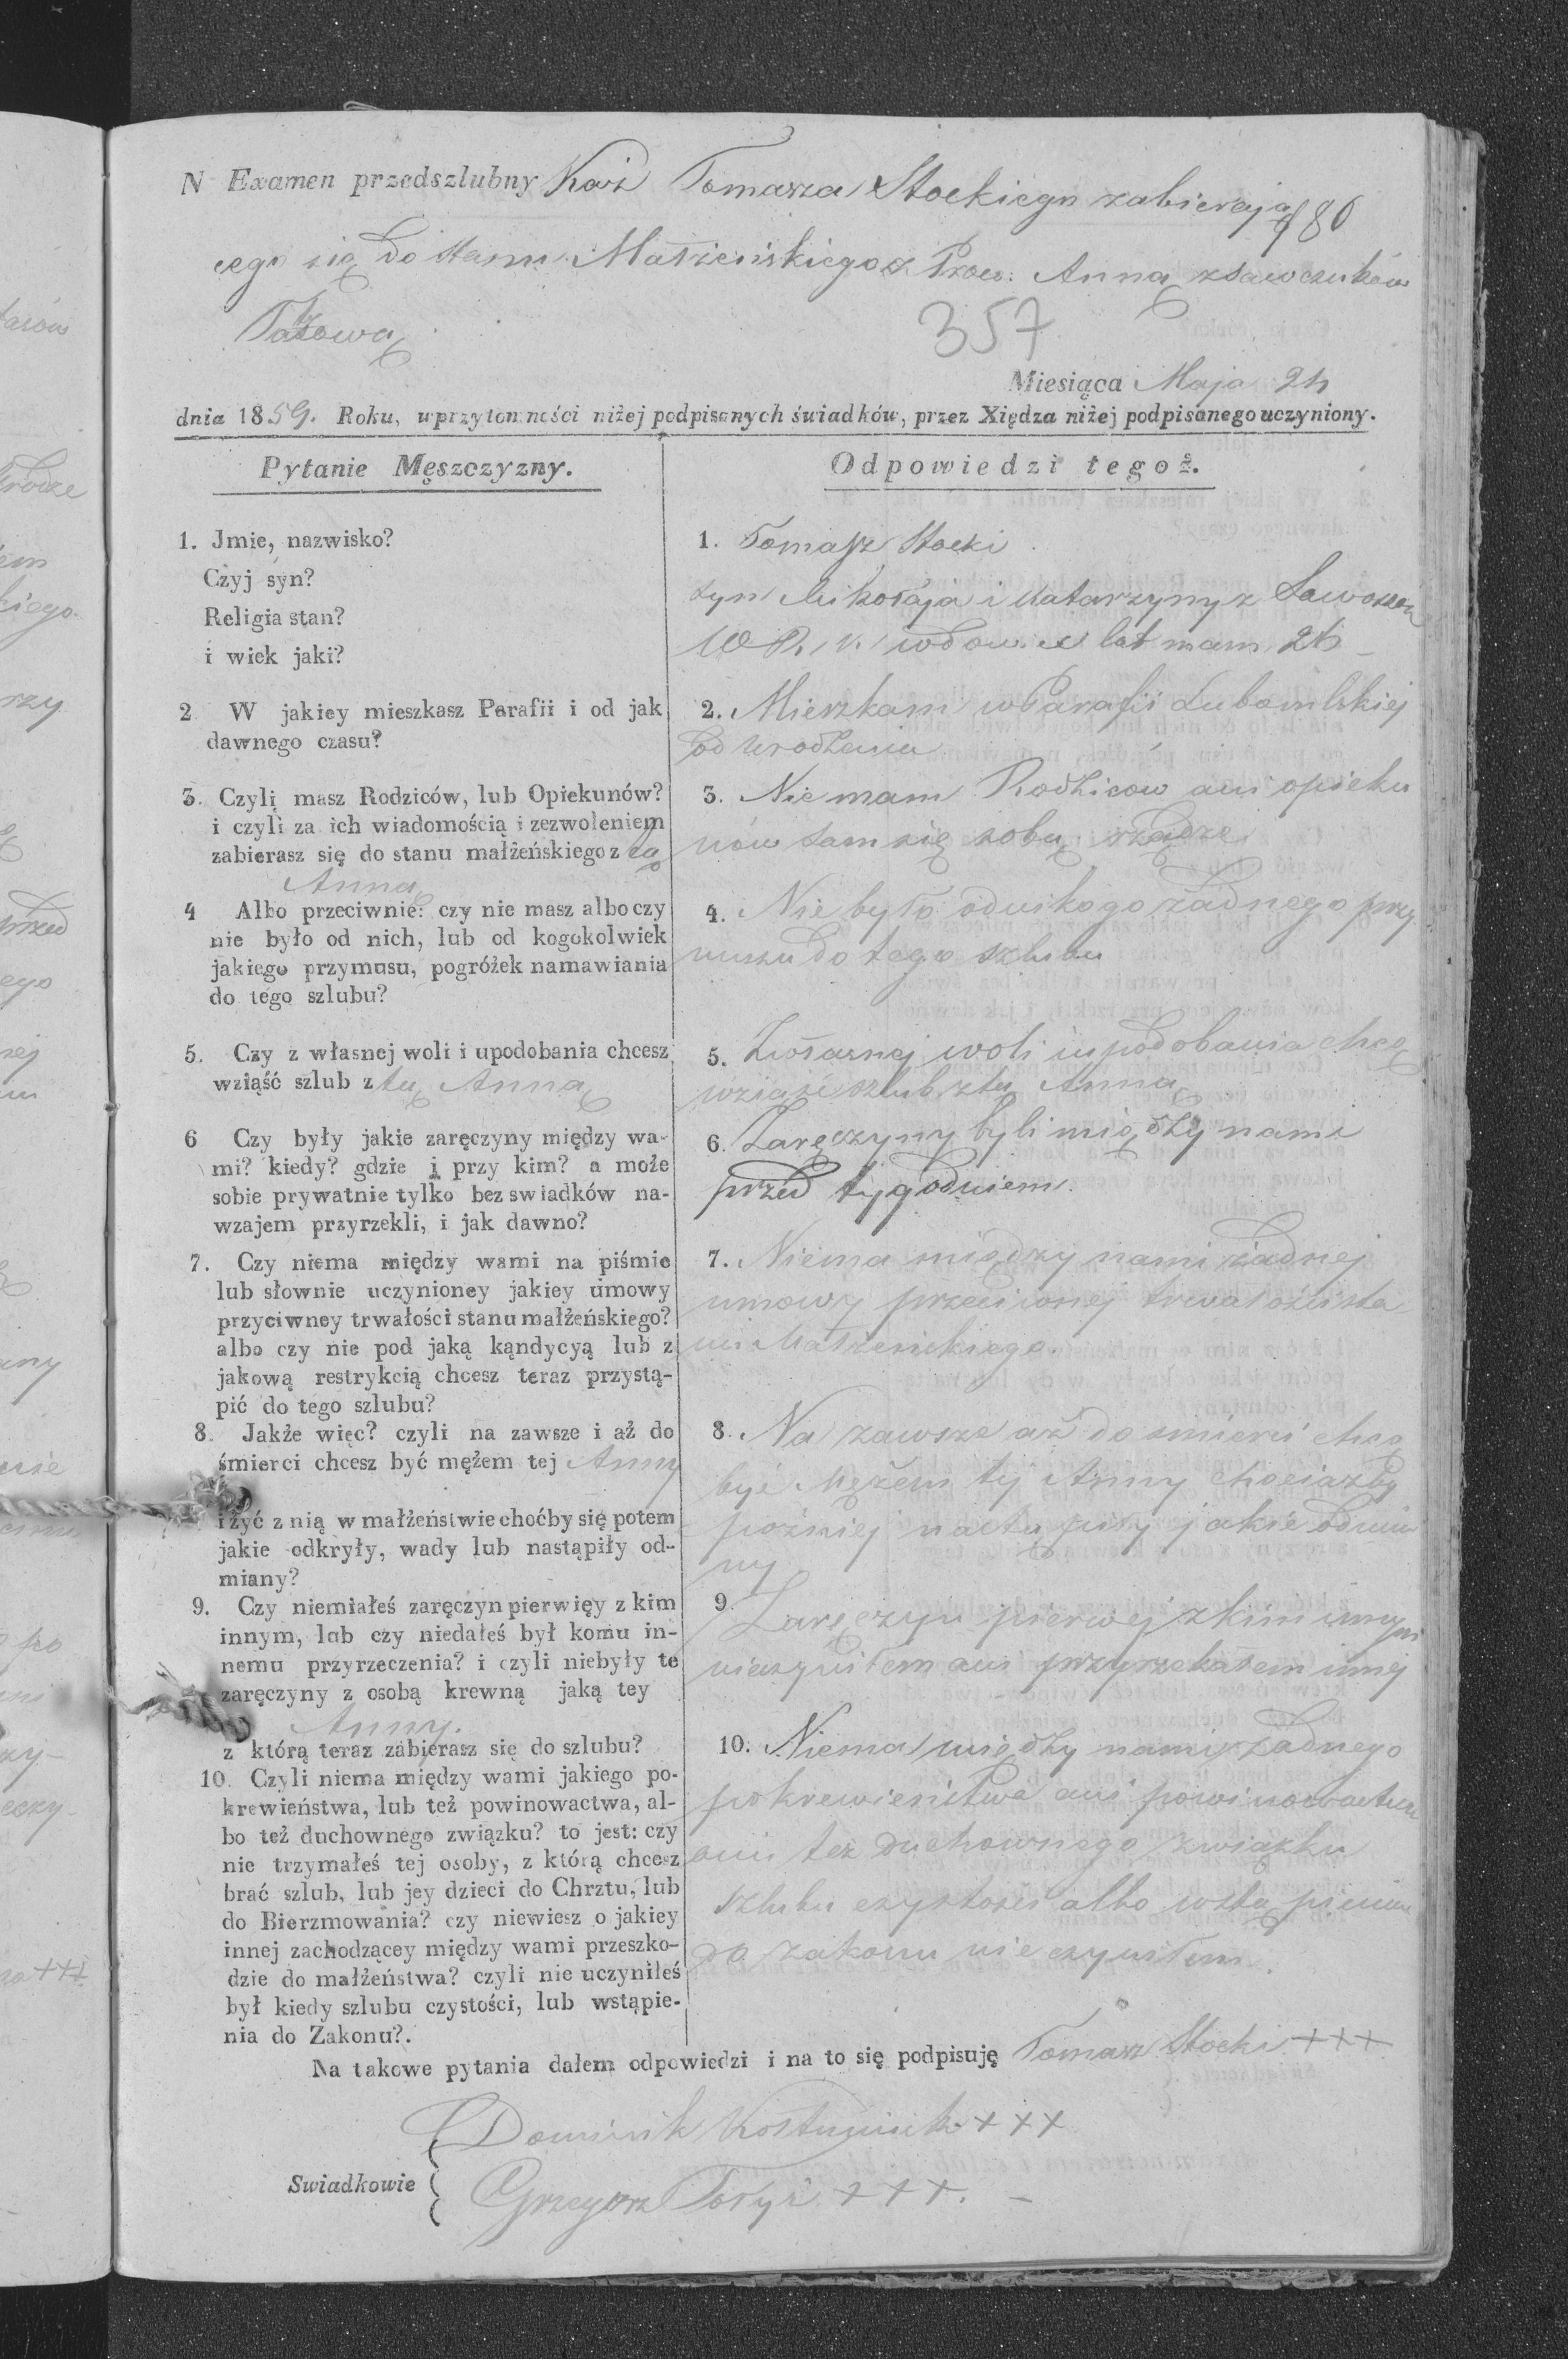 N Examen przedszlubny Tomasza Stockiego zabierają
180
cego się do stanu Małżeńskiego z Anną z Sawczuków
357
Miesiąca Maja 24
dnia 1859. Roku, w przytomności niżej podpisanych świadków, przez Xiędza niżej podpisanego uczyniony.
Pytanie Męszczyzny.
1. Jmie, nazwisko?
Czyj syn?
Religia stan?
i wiek jaki?
2 W jakiey mieszkasz Parafii i od jak
dawnego czasu?
3. Czyli masz Rodziców, lub Opiekunów?
i czyli za ich wiadomością i zezwoleniem
zabierasz się do stanu małżeńskiego z tą
Anną
4 Albo przeciwnie: czy nie masz albo czy
nie było od nich, lub od kogokolwiek
jakiego przymusu, pogróżek namawiania
do tego szlubu?
5. Czy z własnej woli i upodobania chcesz
wziąść szlub z tą Anną
6 Czy były jakie zaręczyny między wa-
mi? kiedy? gdzie i przy kim? a może
sobie prywatnie tylko bez swiadków na-
wzajem przyrzekli, i jak dawno?
7. Czy niema między wami na piśmie
lub słownie uczynioney jakiey umowy
przyciwney trwałości stanu małżeńskiego?
albo czy nie pod jaką kąndycyą lub z
jakową restrykcią chcesz teraz przystą-
pić do tego szlubu?
8. Jakże więc? czyli na zawsze i aż do
śmierci chcesz być mężem tej Anny
i żyć z nią w małżeństwie choćby się potem
jakie odkryły, wady lub nastąpiły od-
miany?
9. Czy niemiałeś zaręczyn pierwięy z kim
innym, lub czy niedałeś był komu in-
nemu przyrzeczenia? i czyli niebyły te
zaręczyny z osobą krewną jaką tey
Anny.
z którą teraz zabierasz się do szlubu?
10. Czyli niema między wami jakiego po-
krewieństwa, lub też powinowactwa, al-
bo też duchownego związku? to jest: czy
nie trzymałeś tej osoby, z którą chcesz
brać szlub, lub jey dzieci do Chrztu, lub
do Bierzmowania? czy niewiesz o jakiey
innej zachodzącey między wami przeszko-
dzie do małżeństwa? czyli nie uczyniłeś
był kiedy szlubu czystości, lub wstąpie-
nia do Zakonu?.
Odpowiedzi tegoż.
1. Tomasz Stocki
syn Mikołaja i Katarzyny z
lat mam 26
2. Mieszkam w Parafii Lubomlskiej
od urodzenia
3. Nie mam Rodzicow ani opieku
nów sam się sobą rządzę
4. Nie było od nikogo żadnego przy
musu do tego szlubu
5. Z własnej woli i upodobania chcę
wziąść szlub z tą Anną
6. Zaręczyny byli między nami
przed tygodniem.
7. Niema między nami żadnej
umowy przeciwnej trwałości sta
nu Małżeńskiego.
8. Na zawsze aż do smierci chcę
być Mężem tej Anny chociażby
poźniej nastąpiły jakie odmia
ny
9. Zaręczyn pierwej z kim innym
nieczyniłem ani przyrzekałem innej
10. Niema między nami żadnego
pokrewieństwa ani powinowactwa
ani też duchownego związku
szlubu czystości albo wstąpienia
do zakonu nie czyniłem.
Na takowe pytania dałem odpowiedzi i na to się podpisuję Tomasz Stocki +++
Dominik +++
Swiadkowie
Grzegorz +++.